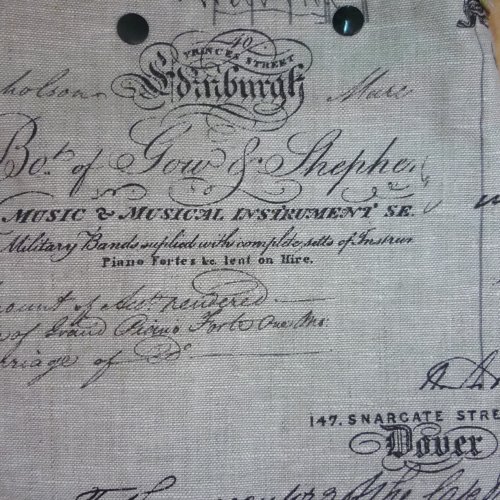 40.
PRINCES STREET
Edinburgh
holson
Bot. of Gow & Shephe
MUSIC & MUSICAL INSTRUMENT SE
Military Bands suplied with complete setts of Instrum
Piano Fortes &c. lent on Hire.
mount of Acct. rendered
of Grand Piano Forte One Mo
rriage of Do
147. SNARGATE STRE
Dover